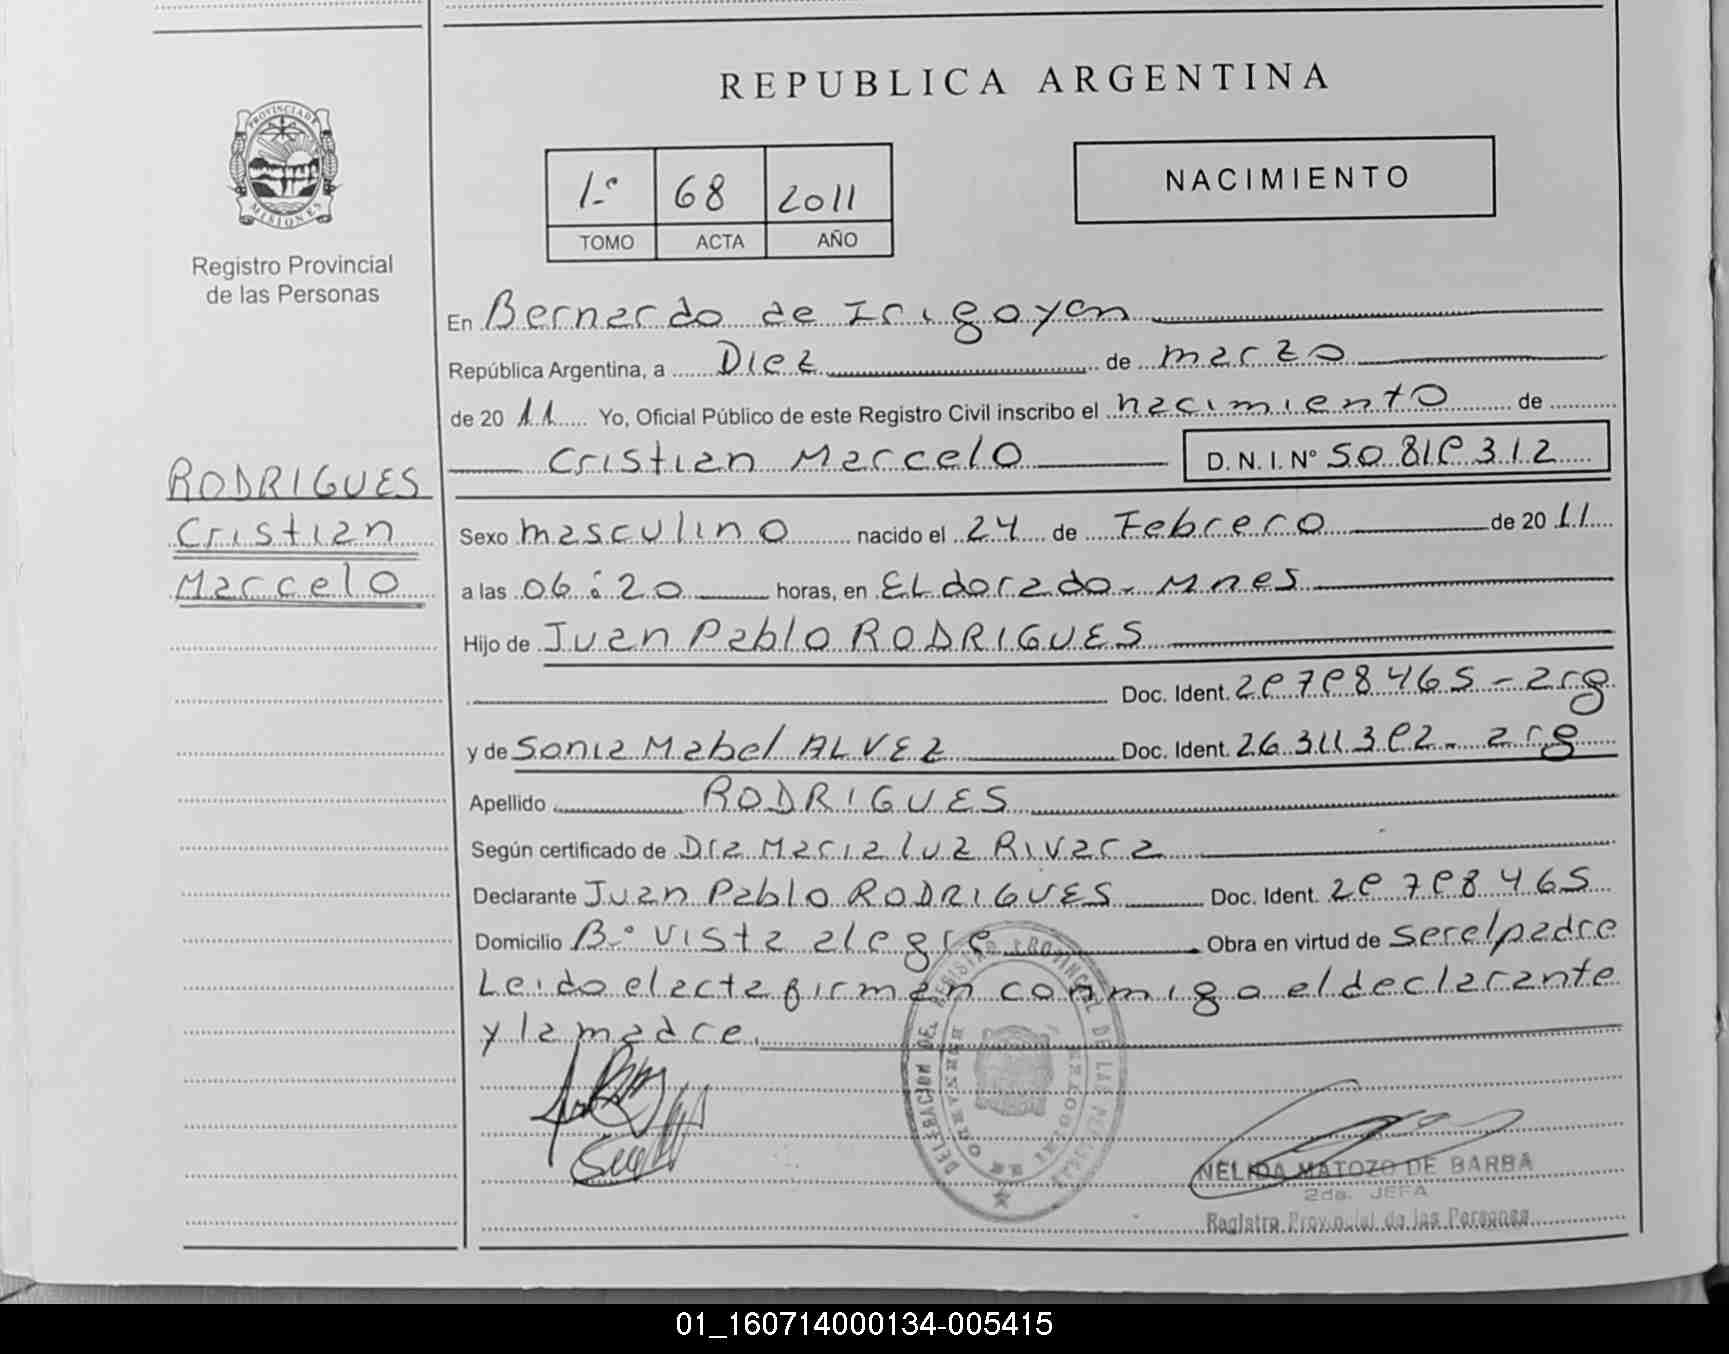 PROVINCIA DE
MISIONES
Registro Provincial
de las Personas
RODRIGUES
Cristian
Marcelo
REPUBLICA ARGENTINA
1.º 68 2011
TOMO ACTA AÑO
NACIMIENTO
En Bernardo de Irigoyen
República Argentina, a Diez de marzo
de 20 11 Yo, Oficial Público de este Registro Civil inscribo el nacimiento de
Cristian Marcelo D. N. I. Nº 50.819.312
Sexo masculino nacido el 24 de Febrero de 20 11
a las 06:20 horas, en ELdorado - Mnes
Hijo de Juan Pablo RODRIGUES
Doc. Ident. 29798465 - arg
y de Sonia Mabel ALVEZ Doc. Ident. 26311392 - arg
Apellido RODRIGUES
Según certificado de Dra Maria luz Rivara
Declarante Juan Pablo RODRIGUES Doc. Ident. 29798465
Domicilio B.º Vista alegre Obra en virtud de ser el padre
Leido el acta firman conmigo el declarante
y la madre.
DELEGACION DEL REGISTRO PROVINCIAL DE LAS PERSONAS
BERNARDO DE IRIGOYEN
NELIDA MATOZO DE BARBA
2da. JEFA
Registro Provincial de las Personas
01_160714000134-005415